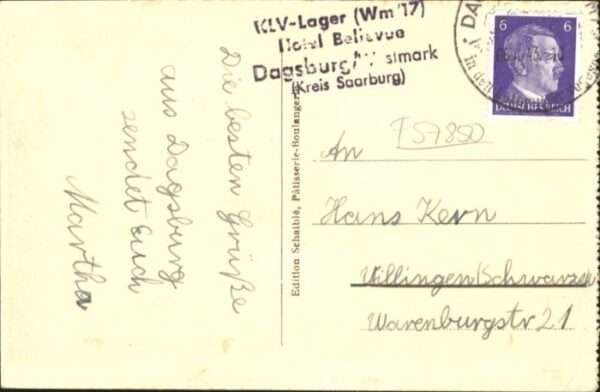 KLV-Lager (Wm 17)
Hotel Bellevue
Dagsburg/Westmark
(Kreis Saarburg)
6 6
DEUTSCHES REICH
57850
Die besten Grüße
aus Dagsburg
sendet Euch
Martha
Edition Schaible, Pâtisserie-Boulanger
An
Hans Kern
Villingen/Schwarzw
Warenburgstr 21